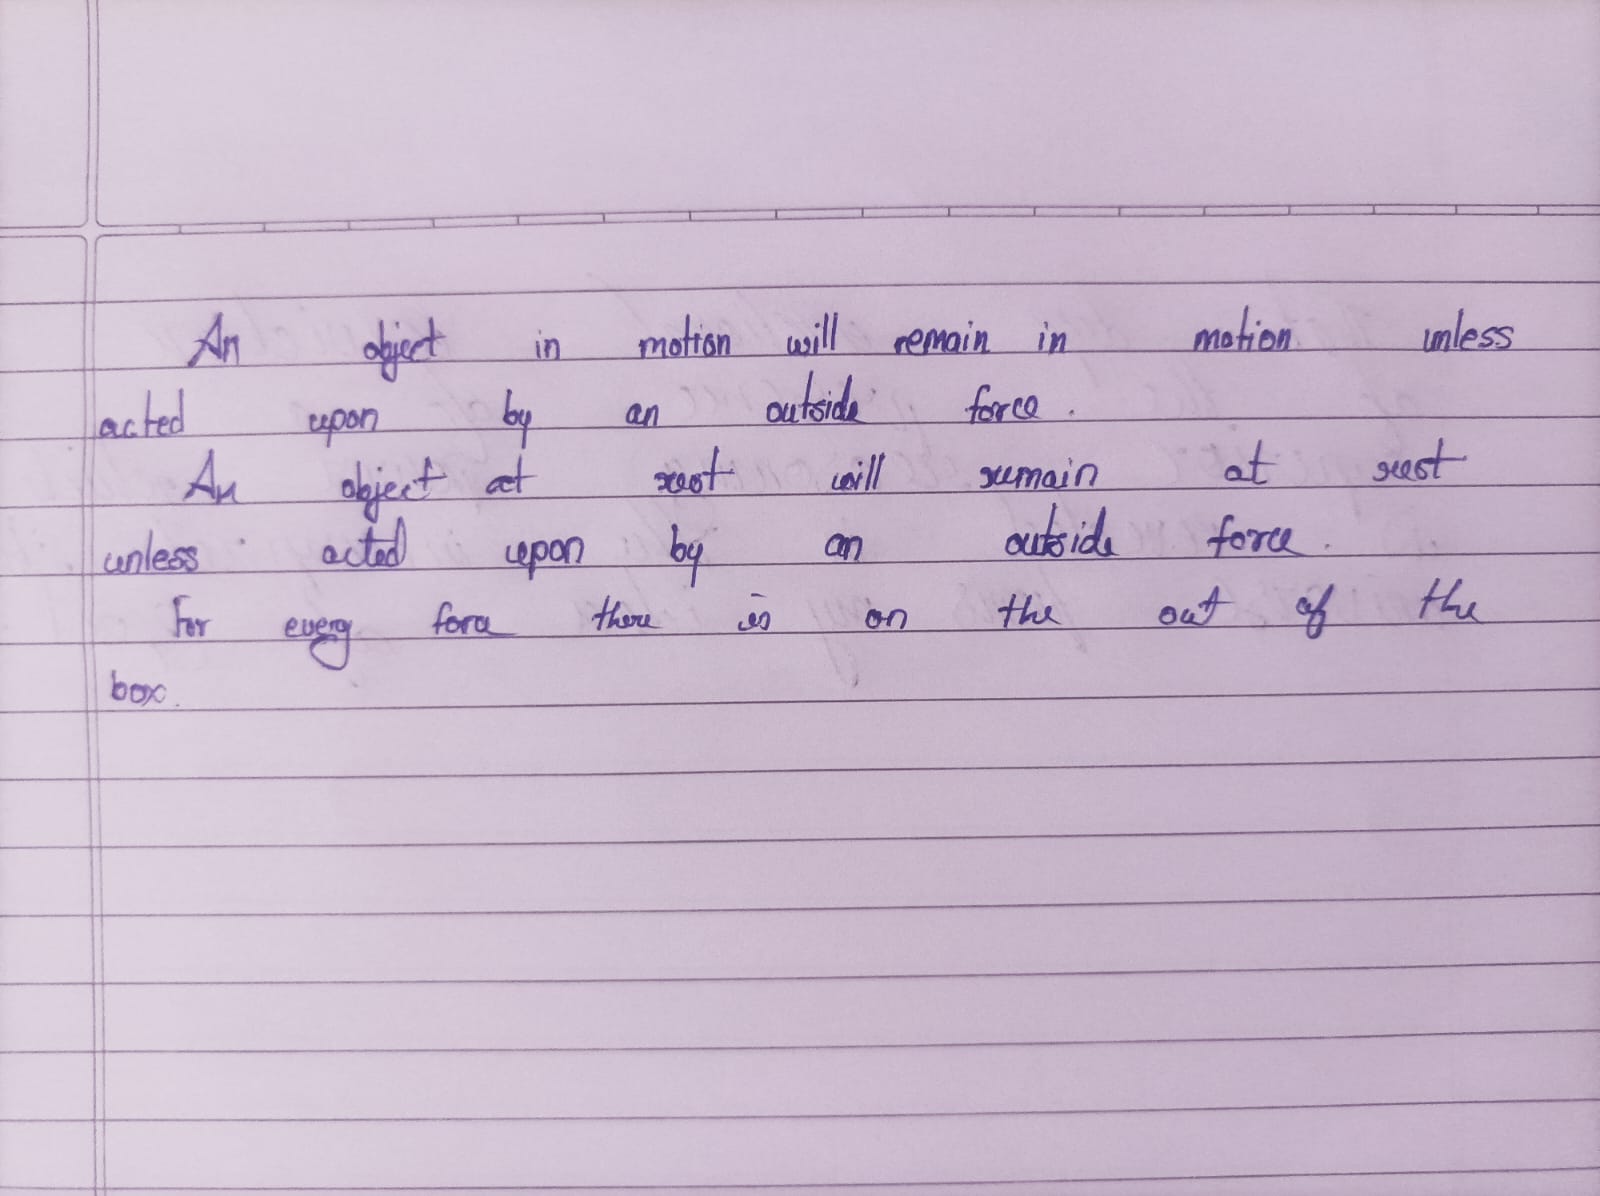 An object in motion will remain in motion unless
acted upon by an outside force.
An object at rest will remain at rest
unless acted upon by an outside force.
For every force there is on the out of the
box.